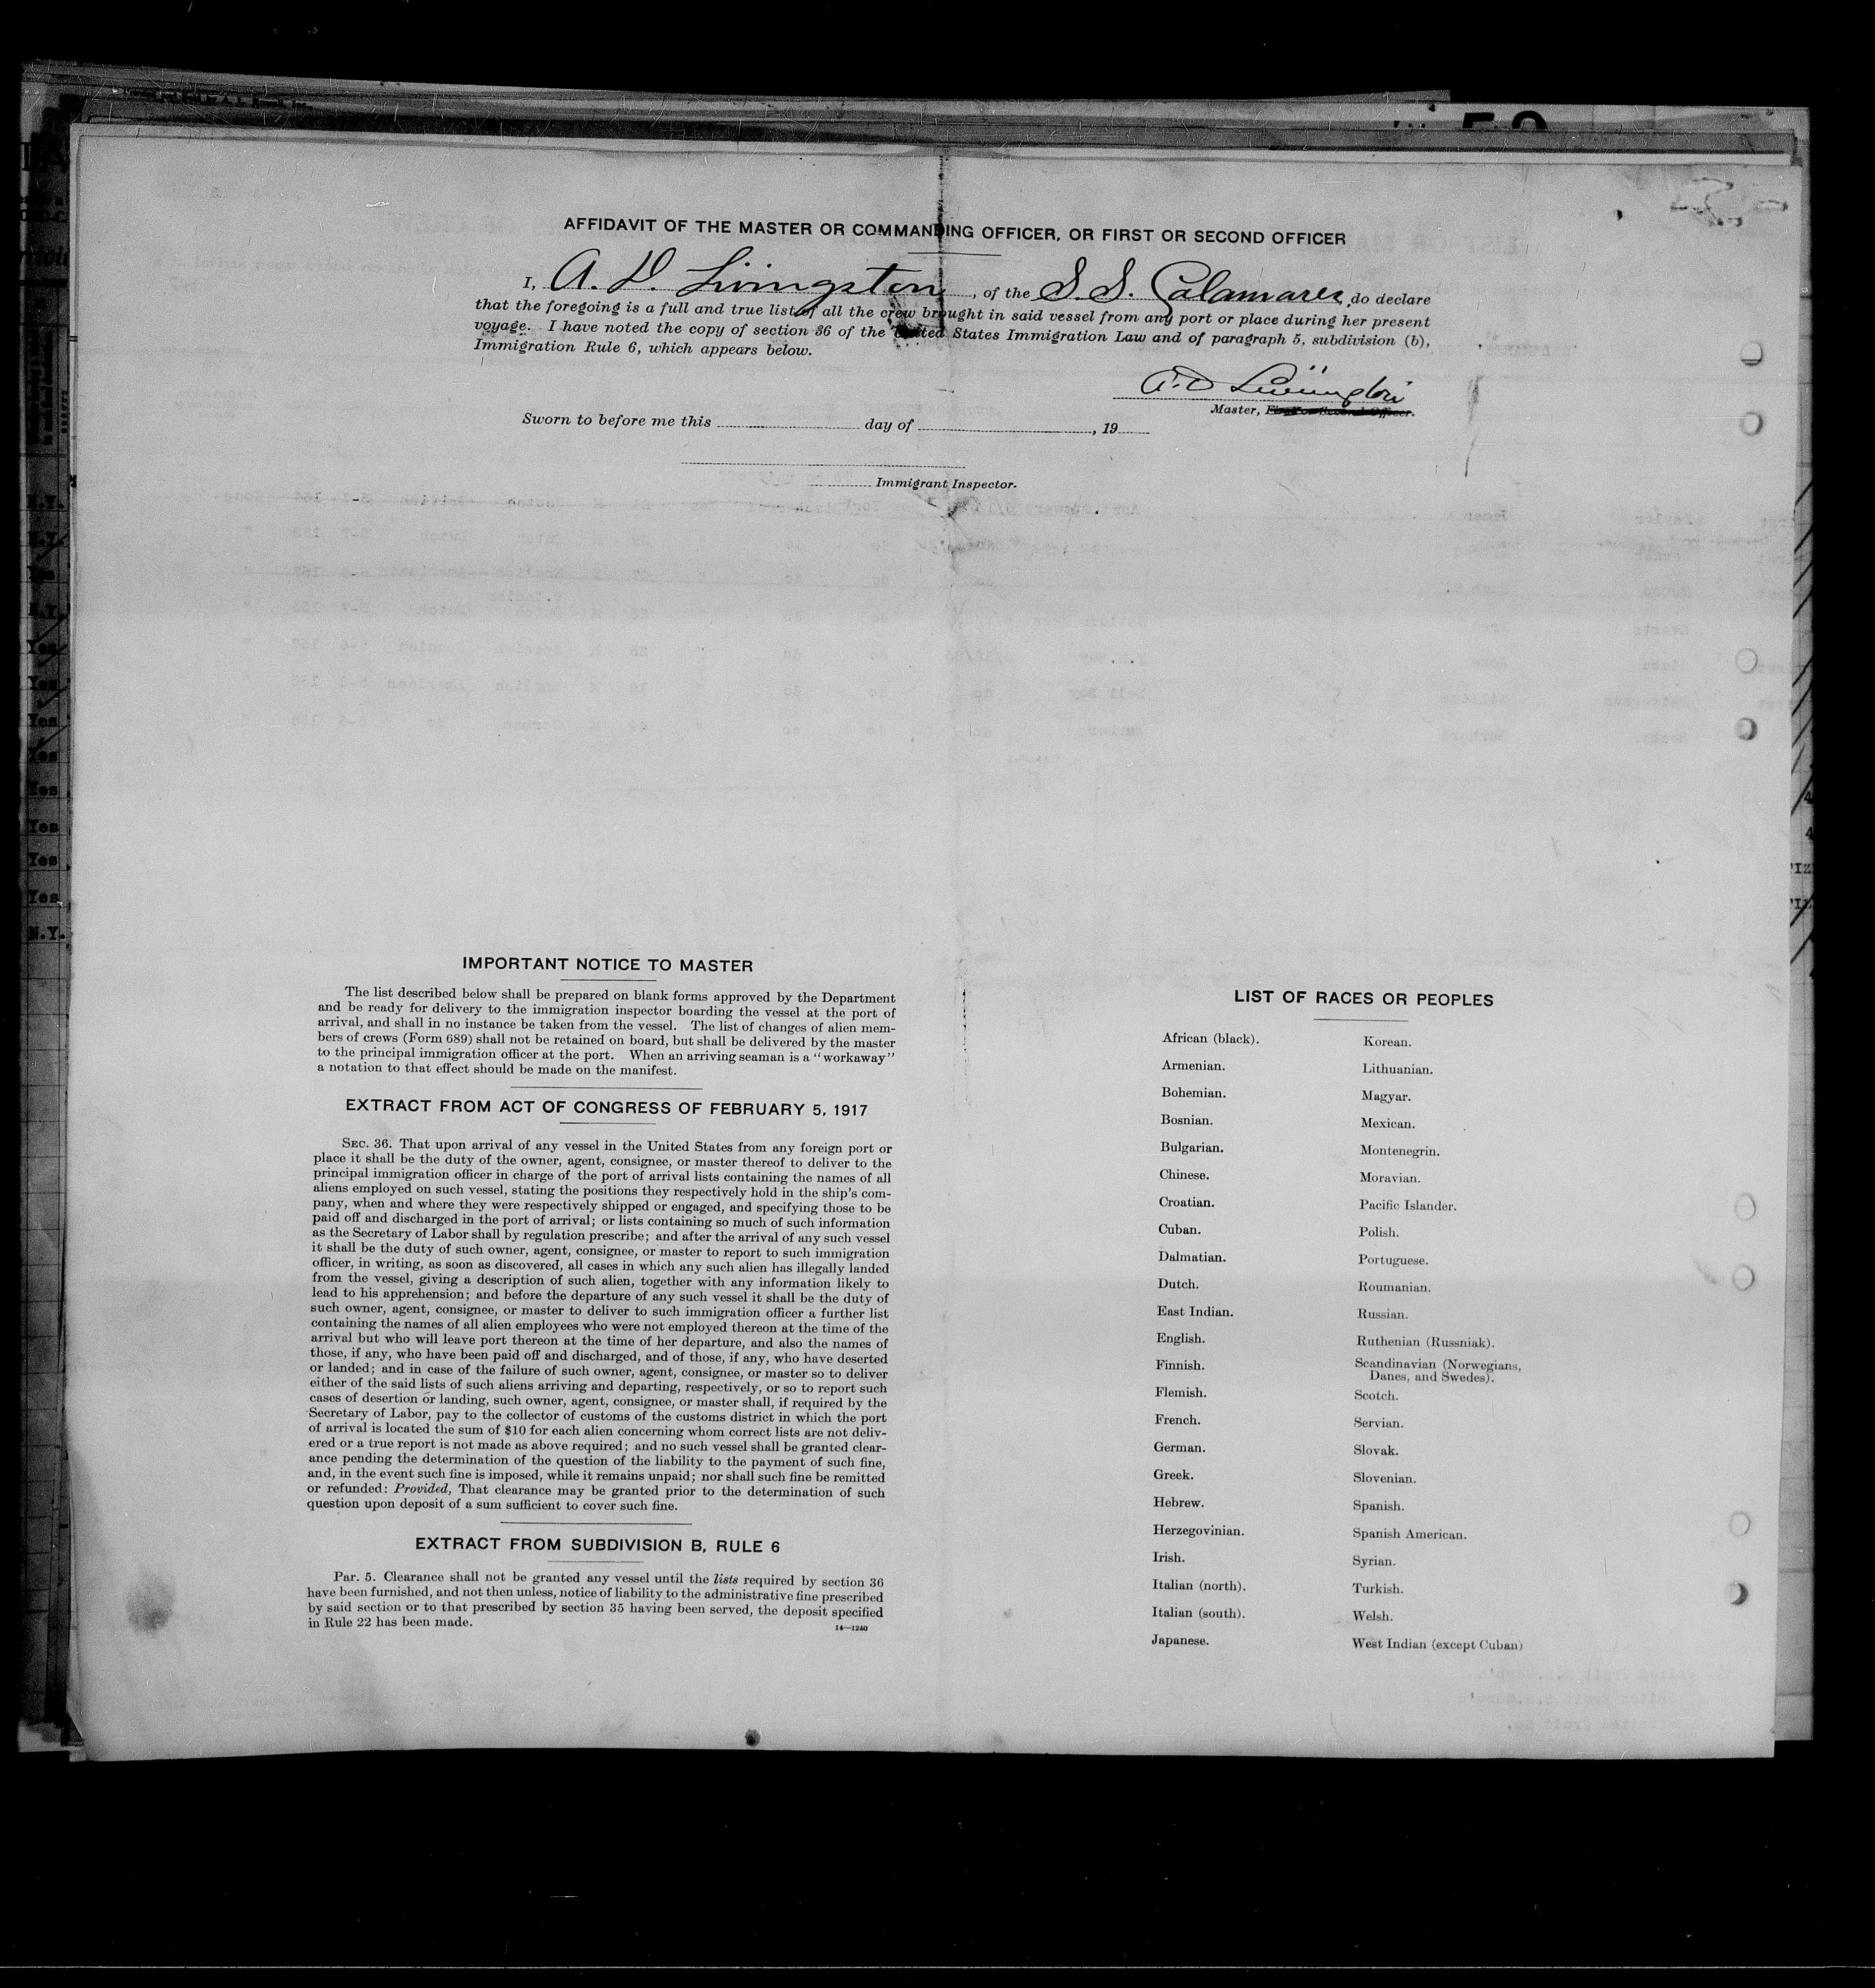 AFFIDAVIT OF THE MASTER OR COMMANDING OFFICER, OR FIRST OR SECOND OFFICER
I, A. D. Livingston, of the S.S. Calamares, do declare
that the foregoing is a full and true list of all the crew brought in said vessel from any port or place during her present
voyage. I have noted the copy of section 36 of the United States Immigration Law and of paragraph 5, subdivision (b),
Immigration Rule 6, which appears below.
A. D. Livingston
Master, First or Second Officer.
Sworn to before me this day of , 19
Immigrant Inspector.
IMPORTANT NOTICE TO MASTER
The list described below shall be prepared on blank forms approved by the Department
and be ready for delivery to the immigration inspector boarding the vessel at the port of
arrival, and shall in no instance be taken from the vessel. The list of changes of alien mem-
bers of crews (Form 689) shall not be retained on board, but shall be delivered by the master
to the principal immigration officer at the port. When an arriving seaman is a "workaway"
a notation to that effect should be made on the manifest.
EXTRACT FROM ACT OF CONGRESS OF FEBRUARY 5, 1917
SEC. 36. That upon arrival of any vessel in the United States from any foreign port or
place it shall be the duty of the owner, agent, consignee, or master thereof to deliver to the
principal immigration officer in charge of the port of arrival lists containing the names of all
aliens employed on such vessel, stating the positions they respectively hold in the ship's com-
pany, when and where they were respectively shipped or engaged, and specifying those to be
paid off and discharged in the port of arrival; or lists containing so much of such information
as the Secretary of Labor shall by regulation prescribe; and after the arrival of any such vessel
it shall be the duty of such owner, agent, consignee, or master to report to such immigration
officer, in writing, as soon as discovered, all cases in which any such alien has illegally landed
from the vessel, giving a description of such alien, together with any information likely to
lead to his apprehension; and before the departure of any such vessel it shall be the duty of
such owner, agent, consignee, or master to deliver to such immigration officer a further list
containing the names of all alien employees who were not employed thereon at the time of the
arrival but who will leave port thereon at the time of her departure, and also the names of
those, if any, who have been paid off and discharged, and of those, if any, who have deserted
or landed; and in case of the failure of such owner, agent, consignee, or master so to deliver
either of the said lists of such aliens arriving and departing, respectively, or so to report such
cases of desertion or landing, such owner, agent, consignee, or master shall, if required by the
Secretary of Labor, pay to the collector of customs of the customs district in which the port
of arrival is located the sum of $10 for each alien concerning whom correct lists are not deliv-
ered or a true report is not made as above required; and no such vessel shall be granted clear-
ance pending the determination of the question of the liability to the payment of such fine,
and, in the event such fine is imposed, while it remains unpaid; nor shall such fine be remitted
or refunded: Provided, That clearance may be granted prior to the determination of such
question upon deposit of a sum sufficient to cover such fine.
EXTRACT FROM SUBDIVISION B, RULE 6
Par. 5. Clearance shall not be granted any vessel until the lists required by section 36
have been furnished, and not then unless, notice of liability to the administrative fine prescribed
by said section or to that prescribed by section 35 having been served, the deposit specified
in Rule 22 has been made.
14—1240
LIST OF RACES OR PEOPLES
African (black).
Armenian.
Bohemian.
Bosnian.
Bulgarian.
Chinese.
Croatian.
Cuban.
Dalmatian.
Dutch.
East Indian.
English.
Finnish.
Flemish.
French.
German.
Greek.
Hebrew.
Herzegovinian.
Irish.
Italian (north).
Italian (south).
Japanese.
Korean.
Lithuanian.
Magyar.
Mexican.
Montenegrin.
Moravian.
Pacific Islander.
Polish.
Portuguese.
Roumanian.
Russian.
Ruthenian (Russniak).
Scandinavian (Norwegians,
Danes, and Swedes).
Scotch.
Servian.
Slovak.
Slovenian.
Spanish.
Spanish American.
Syrian.
Turkish.
Welsh.
West Indian (except Cuban)
N.Y.
N.Y.
Yes
N.Y.
Yes
Yes
Yes
Yes
Yes
Yes
Yes
Yes
N.Y.